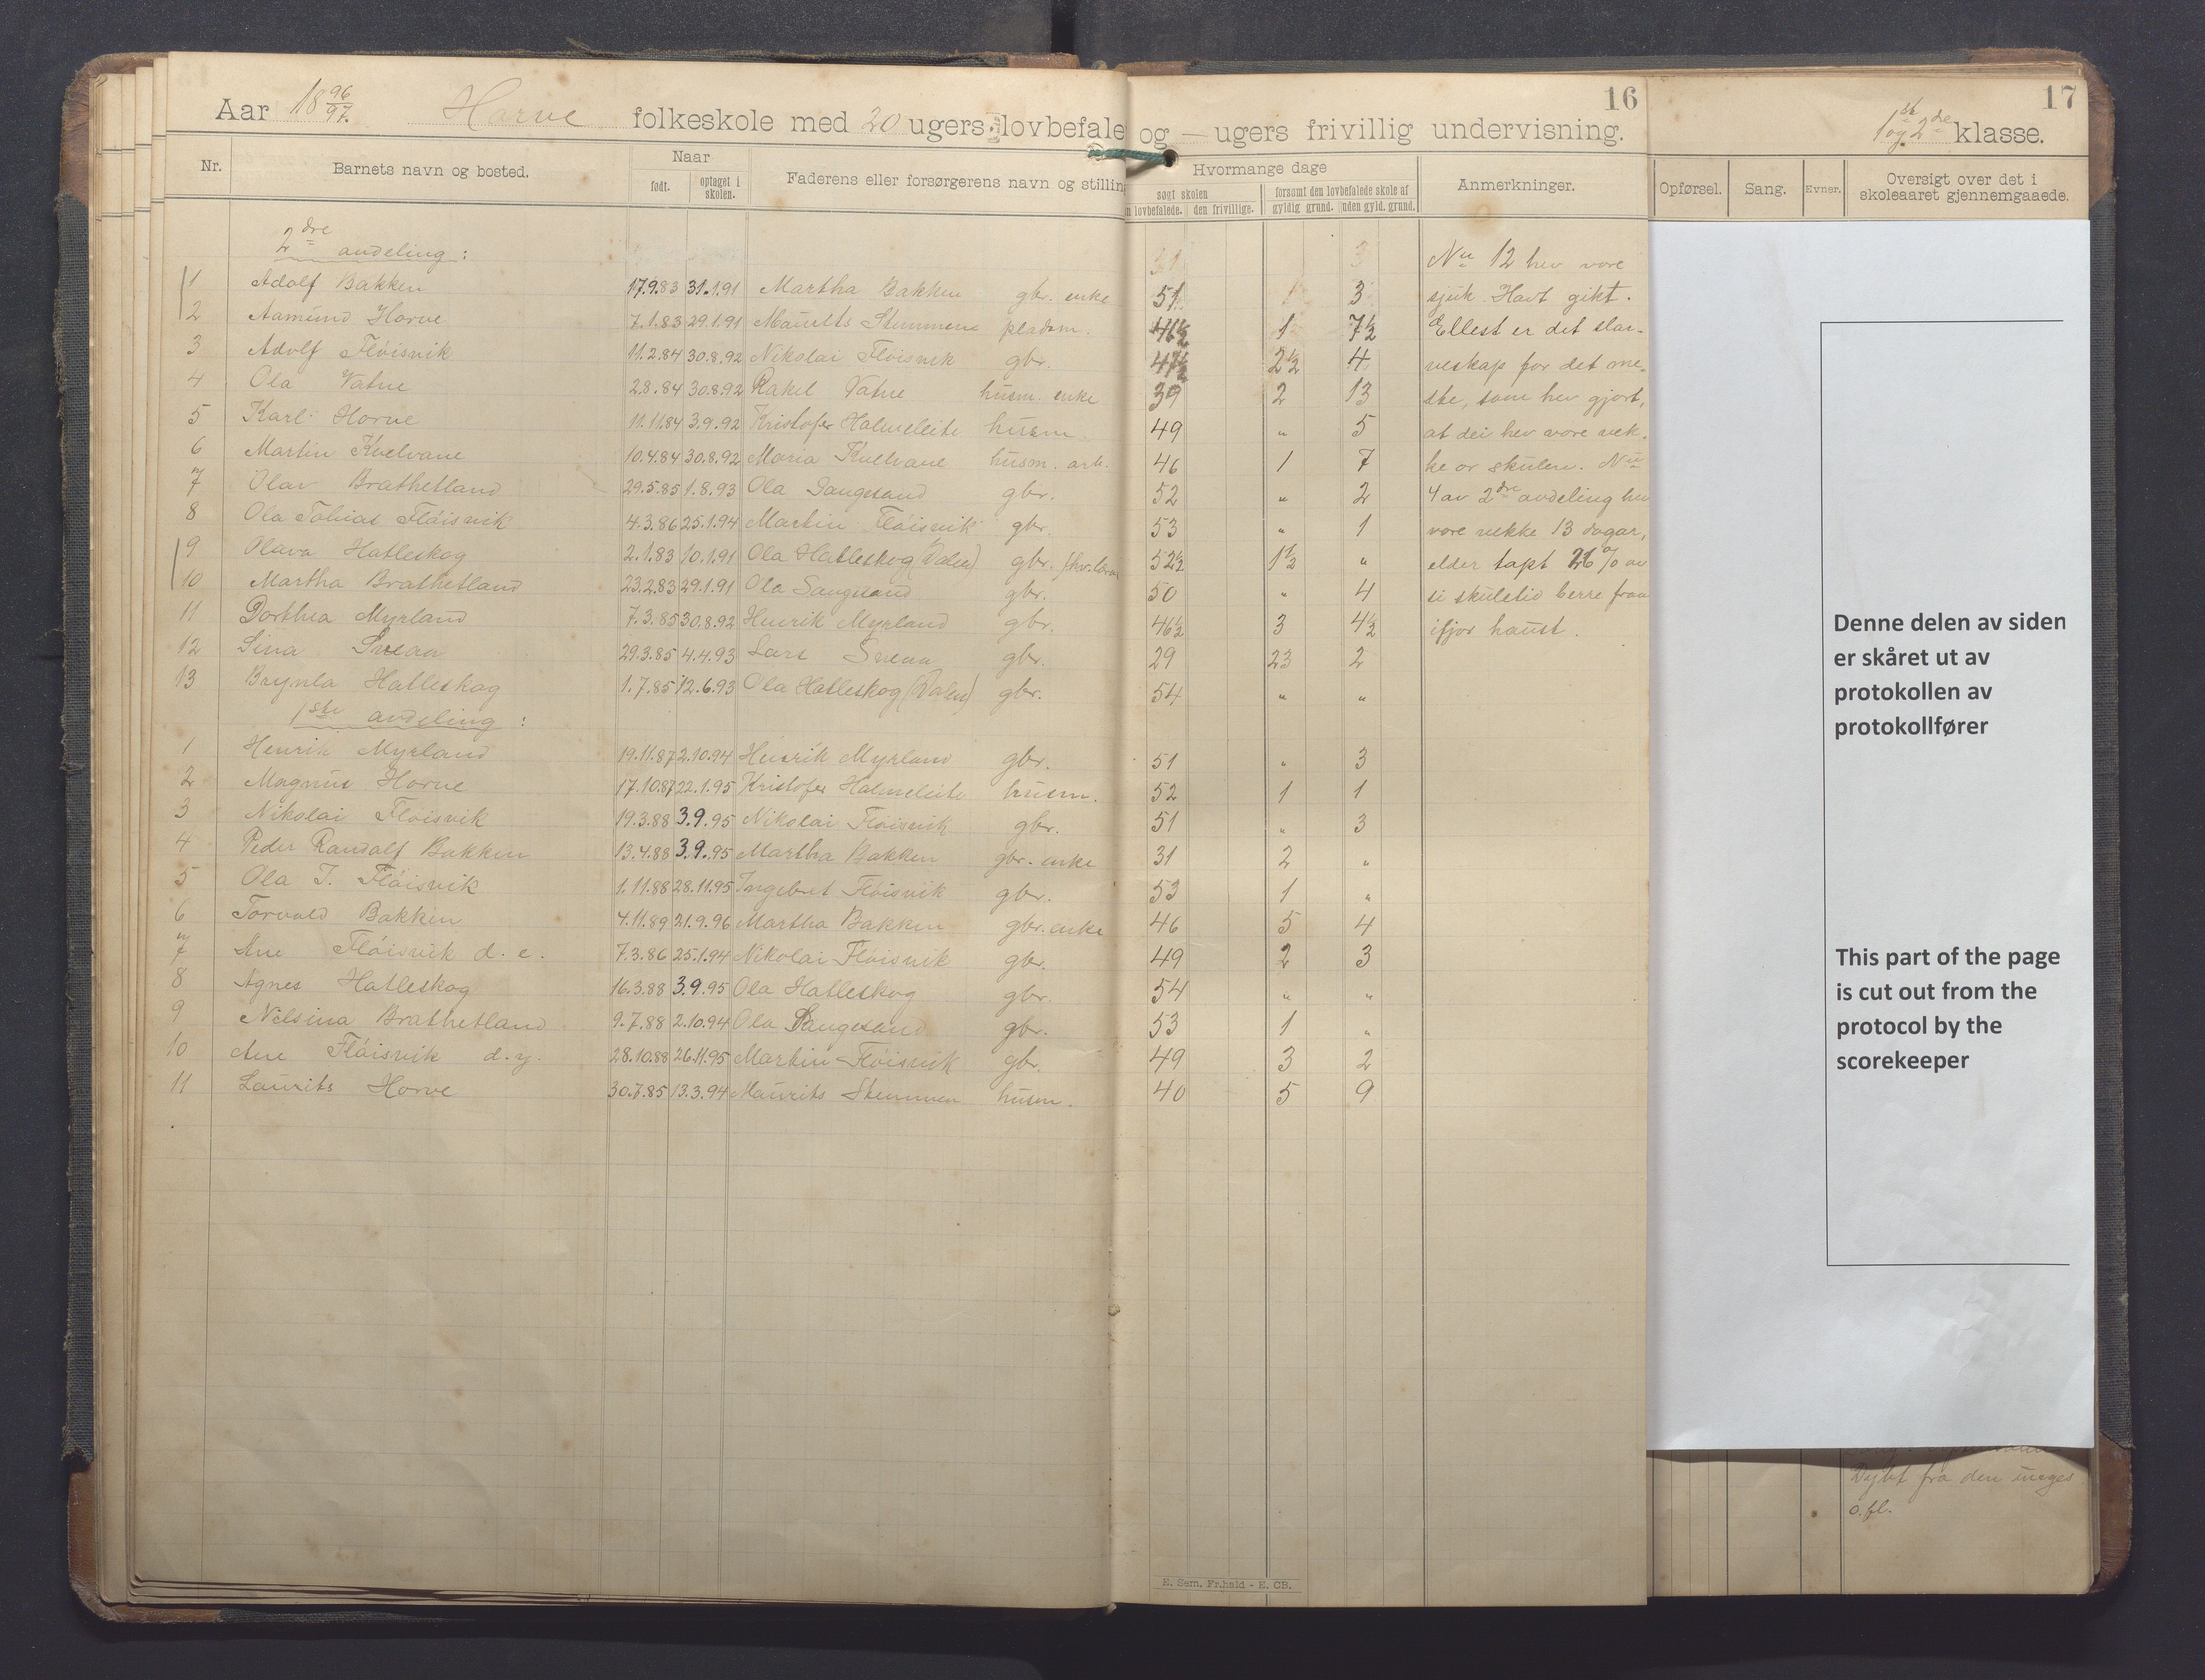 Aar 18 96/97. Horve folkeskole med 20 ugers lovbefale og — ugers frivillig undervisning. 16
1ste og 2dre klasse. 17
Nr. Barnets navn og bosted. Naar født. optaget i skolen. Faderens eller forsørgerens navn og stillin
Hvormange dage søgt skolen n lovbefalede. den frivillige. forsømt den lovbefalede skole af gyldig grund. uden gyld. grund. Anmerkninger.
Opførsel. Sang. Evner. Oversigt over det i skoleaaret gjennemgaaede.
2dre avdeling:
1 Adolf Bakken 17.9.83 31.1.91 Martha Bakken gbr. enke 51 3
2 Aamund Horve 7.1.83 29.1.91 Maurits Stemmene pladsm. 46½ 1 7½
3 Adolf Fløisvik 11.2.84 30.8.92 Nikolai Fløisvik gbr. 47½ 2½ 4
4 Ola Vatne 2.8.84 30.8.92 Rakel Vatne husm. enke 39 2 13
5 Karl Horve 11.11.84 3.9.92 Kristofer Halmeleite husm. 49 " 5
6 Martin Kvelvane 10.4.84 30.8.92 Maria Kvelvane husm. arb. 46 1 7
7 Olav Brathetland 29.5.85 1.8.93 Ola Sangesand gbr. 52 " 2
8 Ola Tobias Fløisvik 4.3.86 25.1.94 Martin Fløisvik gbr. 53 " 1
9 Olava Hatleskog 2.1.83 10.1.91 Ola Hatleskog (Dalen) gbr. 52½ 1½ "
10 Martha Brathetland 23.2.83 29.1.91 Ola Sangesand gbr. 50 " 4
11 Dorthea Myrland 7.3.85 30.8.92 Henrik Myrland gbr. 46½ 3 4½
12 Sina Snean 29.3.85 4.4.93 Lars Snean gbr. 29 23 2
13 Brynla Hatleskog 1.7.85 12.6.93 Ola Hatleskog (Dalen) gbr. 54 " "
Nu 12 hev vore
sjuk. Havt gikt.
Ellest er det slar-
veskap for det me-
ste, som hev gjort,
at dei hev vore vek-
ke or skulen. Nu
4 av 2dre avdeling hev
vore vekke 13 dagar,
elder tapt 26% av
si skuletid berre fraa
ifjor haust.
1ste avdeling:
1 Henrik Myrland 19.11.87 2.10.94 Henrik Myrland gbr. 51 " 3
2 Magnus Horve 17.10.87 22.1.95 Kristofer Halmeleite husm. 52 1 1
3 Nikolai Fløisvik 19.3.88 3.9.95 Nikolai Fløisvik gbr. 51 " 3
4 Peder Randalf Bakken 13.4.88 3.9.95 Martha Bakken gbr. enke 31 2 "
5 Ola I. Fløisvik 1.11.88 28.11.95 Ingebret Fløisvik gbr. 53 1 "
6 Torvald Bakken 4.11.89 21.9.96 Martha Bakken gbr. enke 46 5 4
7 Ane Fløisvik d. e. 7.3.86 25.1.94 Nikolai Fløisvik gbr. 49 2 3
8 Agnes Hatleskog 16.3.88 3.9.95 Ola Hatleskog gbr. 54 " "
9 Nelsina Brathetland 9.7.88 2.10.94 Ola Sangesand gbr. 53 1 "
10 Ane Fløisvik d. y. 28.10.88 26.11.95 Martin Fløisvik gbr. 49 3 2
11 Laurits Horve 30.7.85 13.3.94 Maurits Stemmen husm. 40 5 9
Denne delen av siden
er skåret ut av
protokollen av
protokollfører
This part of the page
is cut out from the
protocol by the
scorekeeper
Dybt fra den
o.fl.
E. Sem. Fr.hald - E. CB.